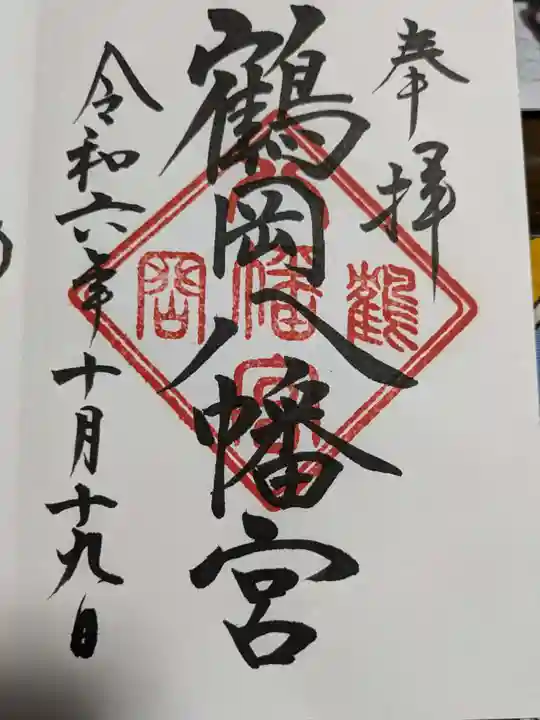 奉拝
鶴岡八幡宮
鶴
八幡宮
岡
令和六年十月十九日